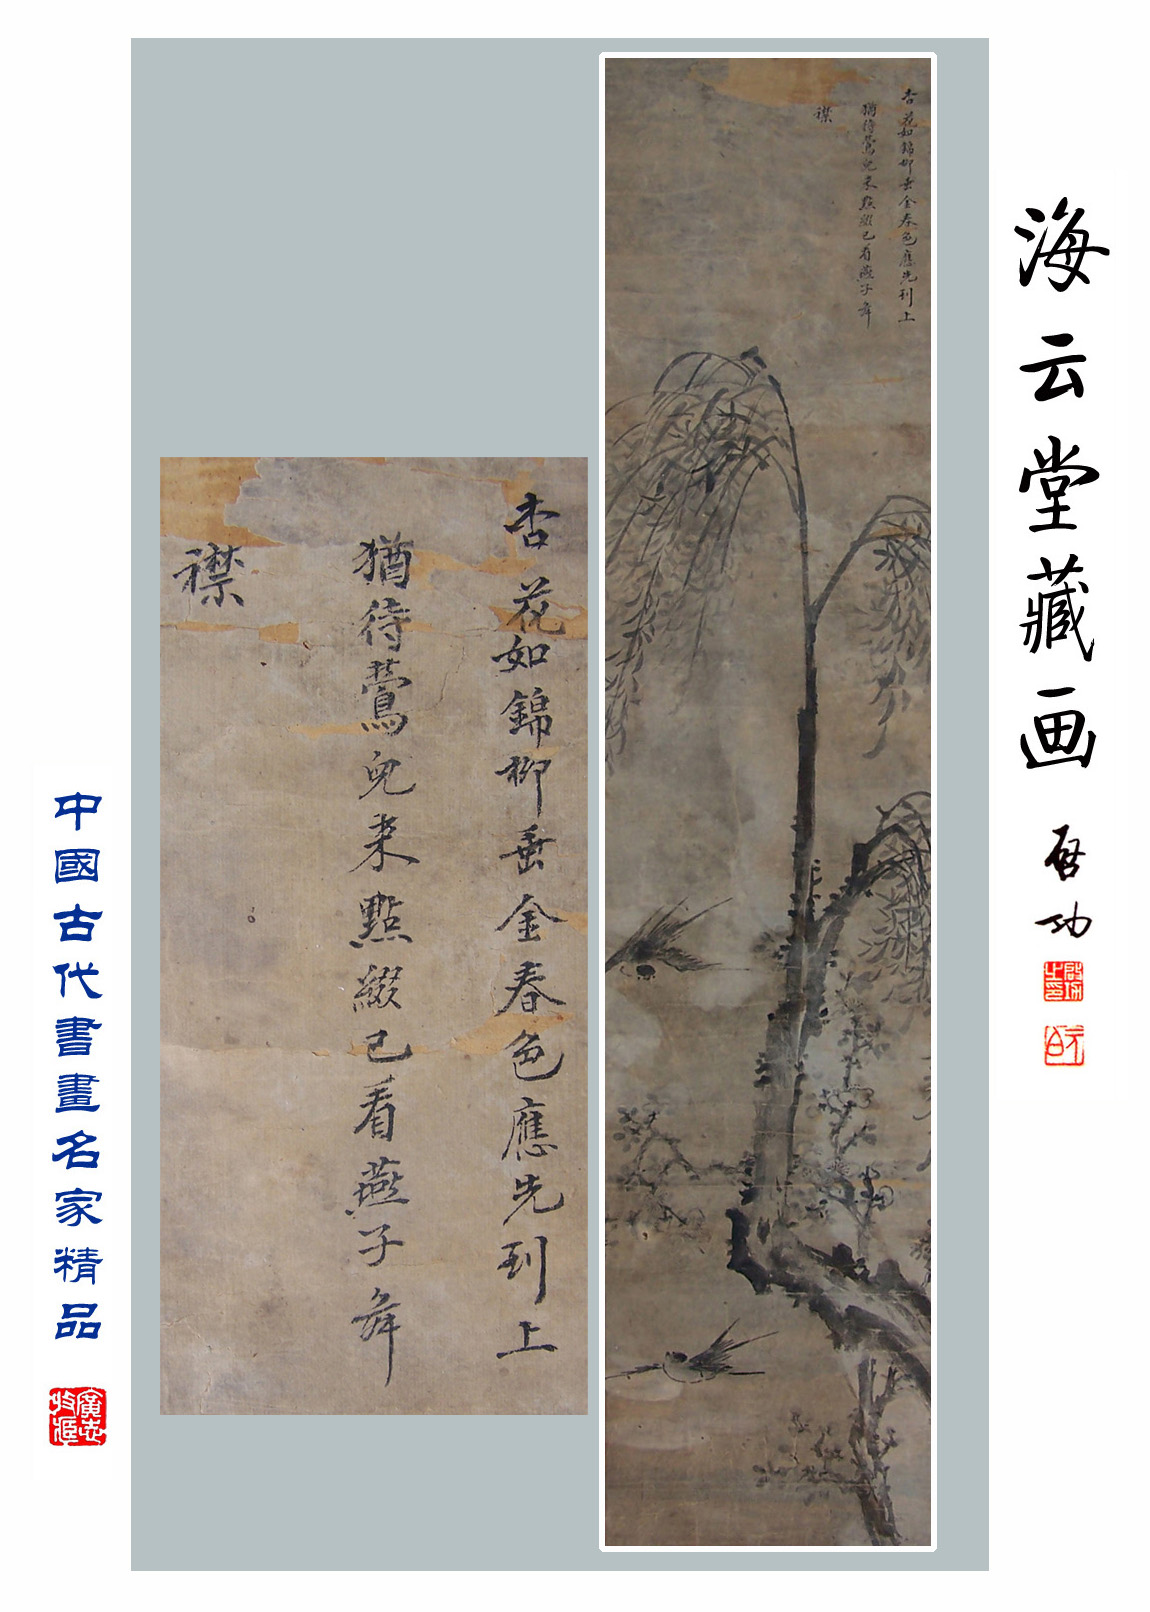 海云堂藏画
啓功
杏花如錦柳垂金春色應先到上
猶待鶯兒来點綴已看燕子舞
襟
杏花如錦柳垂金春色應先到上
猶待鶯兒来點綴已看燕子舞
襟
中國古代書畫名家精品